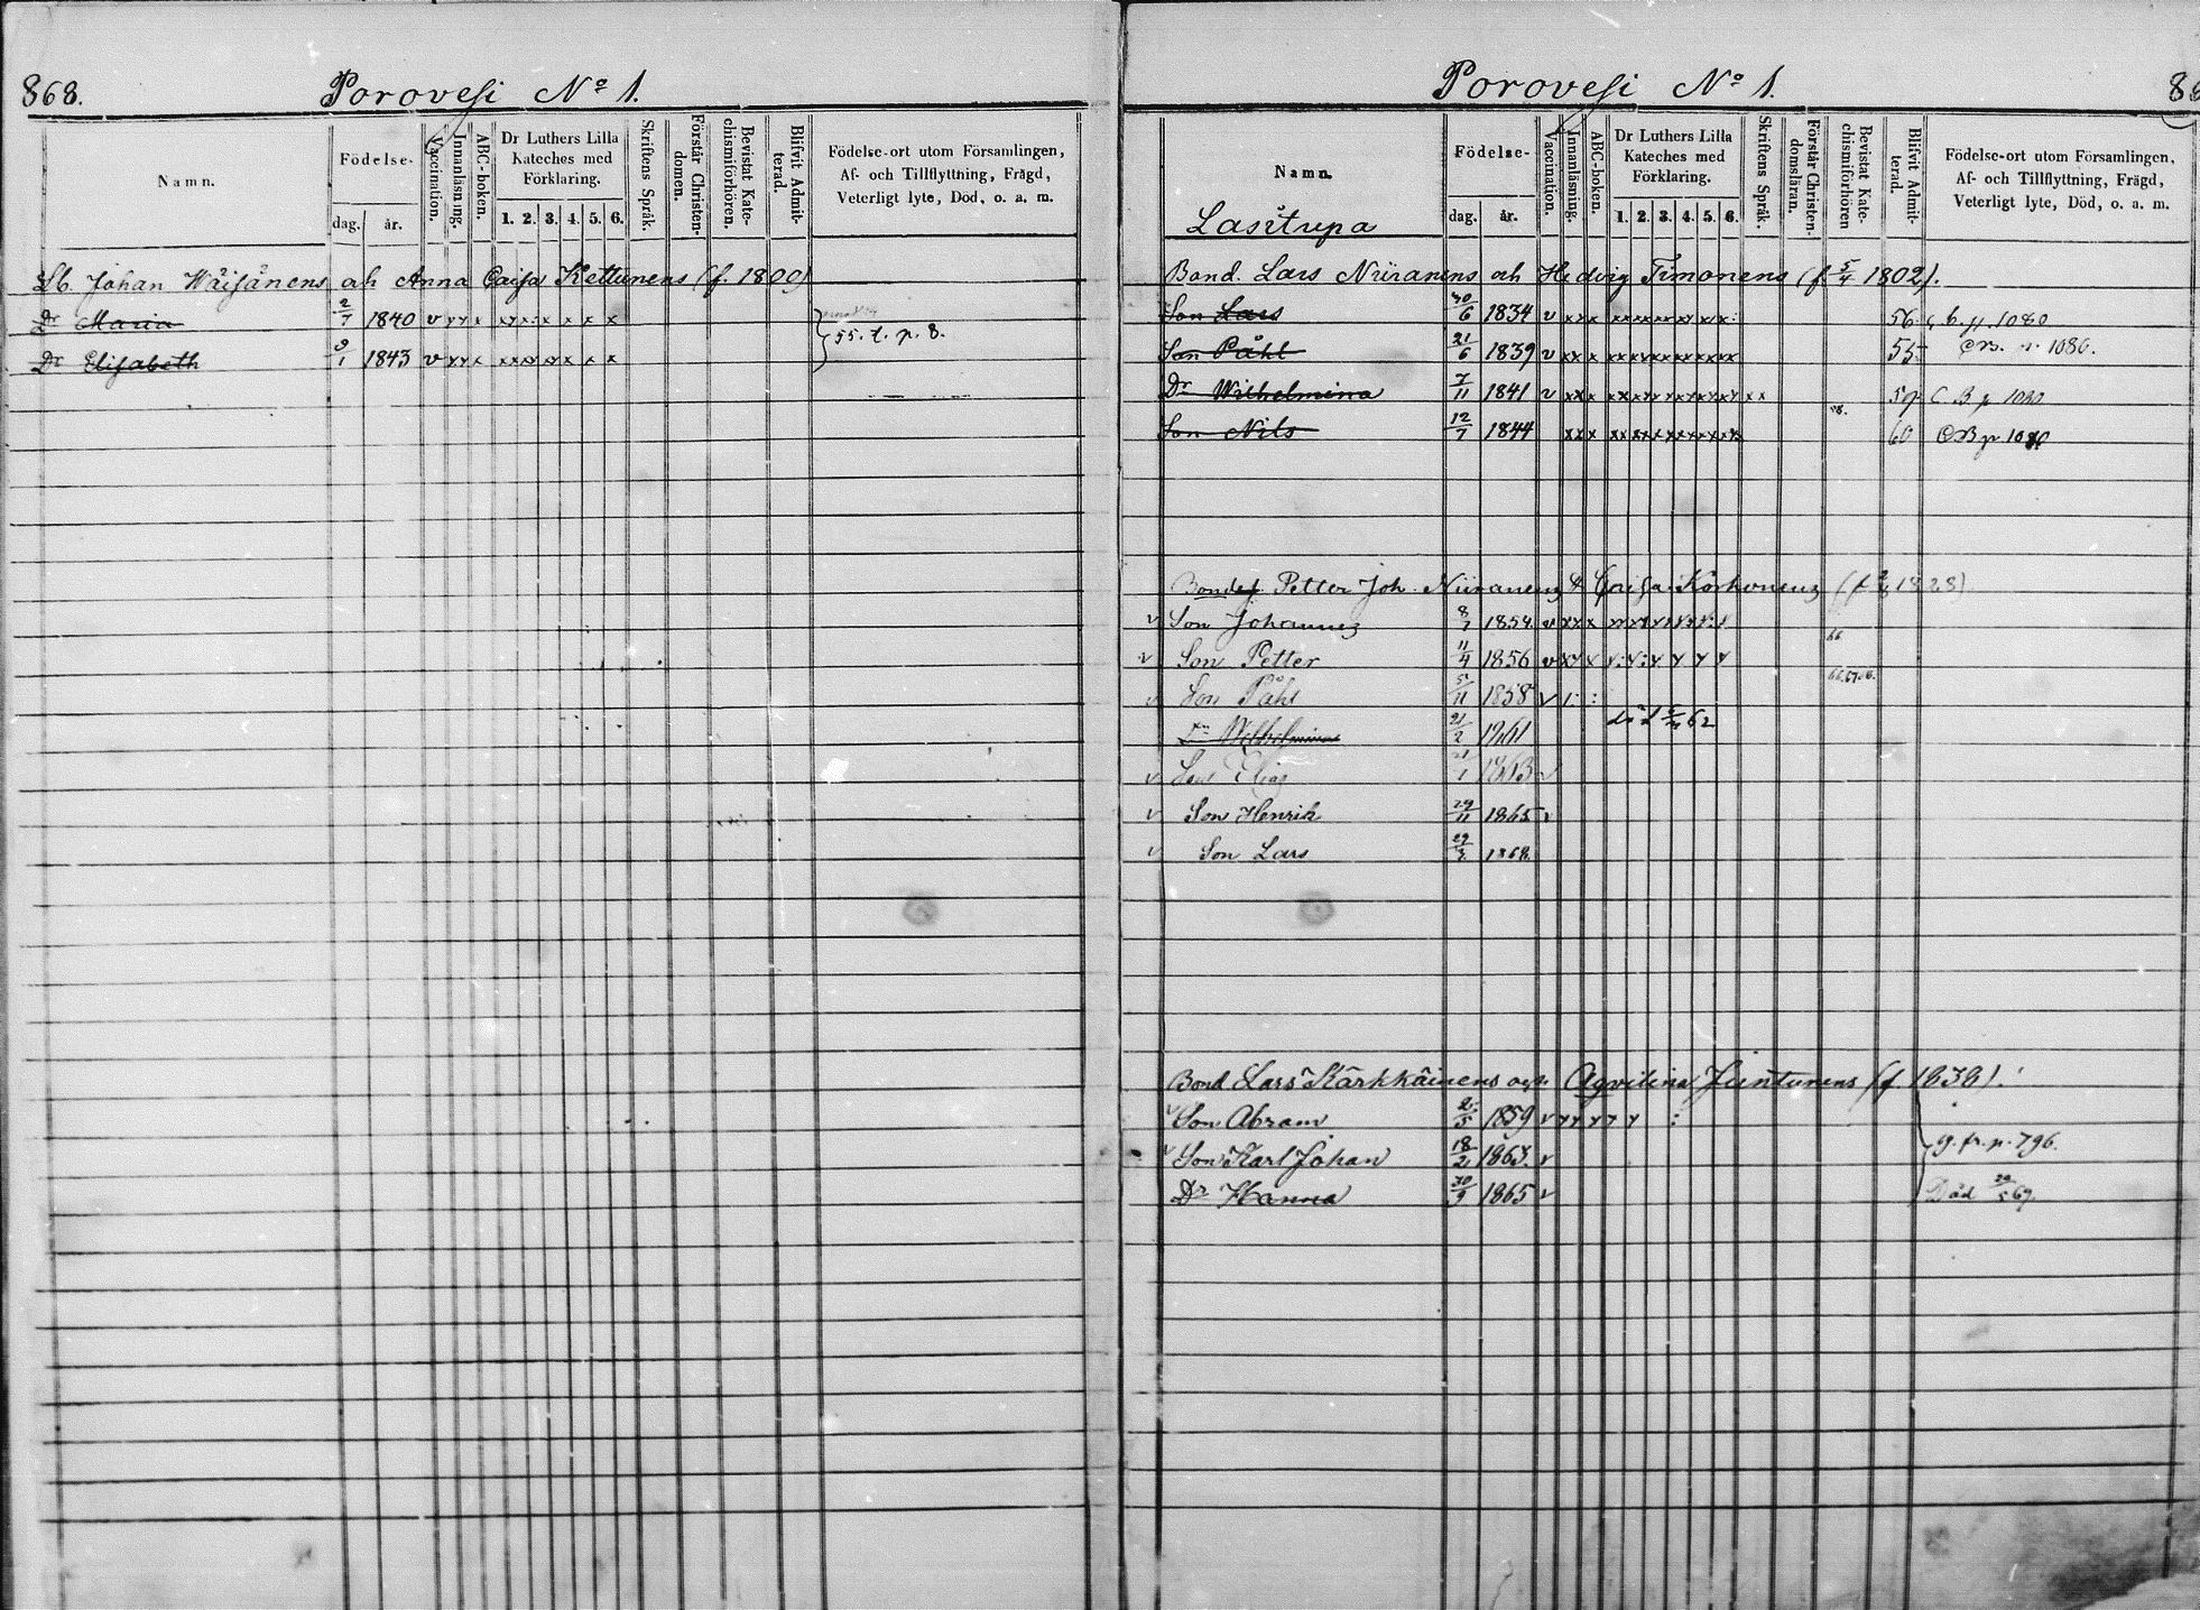 868.
Porovesi No 1.
Namn.
Födelse-
dag. år.
Vaccination.
Innanläsning.
ABC-boken.
Dr Luthers Lilla Kateches med Förklaring.
1. 2. 3. 4. 5. 6.
Skriftens Språk.
Förstår Christendomen.
Bevistat Katechismiförhören.
Blifvit Admitterad.
Födelse-ort utom Församlingen,
Af- och Tillflyttning, Frägd,
Veterligt lyte, Död, o. a. m.
Lb. Johan Wäisänens och Anna Caisa Kettunens (f. 1800)
Dr Maria 2/7 1840 v x x x x x x x x x
Dr Elisabeth 9/1 1843 v x x x x x x x x x
55. t. p. 8.
Porovesi No 1.
86
Namn.
Lasitupa
Födelse-
dag. år.
Vaccination.
Innanläsning.
ABC-boken.
Dr Luthers Lilla Kateches med Förklaring.
1. 2. 3. 4. 5. 6.
Skriftens Språk.
Förstår Christendomsläran.
Bevistat Katechismiförhören
Blifvit Admitterad.
Födelse-ort utom Församlingen,
Af- och Tillflyttning, Frägd,
Veterligt lyte, Död, o. a. m.
Bond. Lars Niiranens och Hedvig Timonens (f. 5/4 1802).
Son Lars 30/6 1834 v 56. C. b. p. 1080
Son Påhl 21/6 1839 v 55 CB. p. 1080.
Dr Wilhelmina 7/11 1841 v 59 C B p 1080
Son Nils 12/7 1844 60 CB p 1080
Bondes. Petter Joh. Niiranens & Caisa Korhonens (f 1828)
v Son Johannes 8/7 1854 v
66
v Son Petter 11/4 1856 v
v Son Påhl 5/11 1858 v
Dr Wilhelmina 21/2 1861 död 62
v Son Elias 21/1 1863 v
v Son Henrik 29/11 1865 v
v Son Lars 29/3 1868
Bond Lars Kärkkäinens och Agvilina Juntunens (f 1838).
v Son Abram 2/5 1859 v
v Son Karl Johan 18/2 1863. v fr. p. 796.
Dr Hanna 30/9 1865 v Död 69.